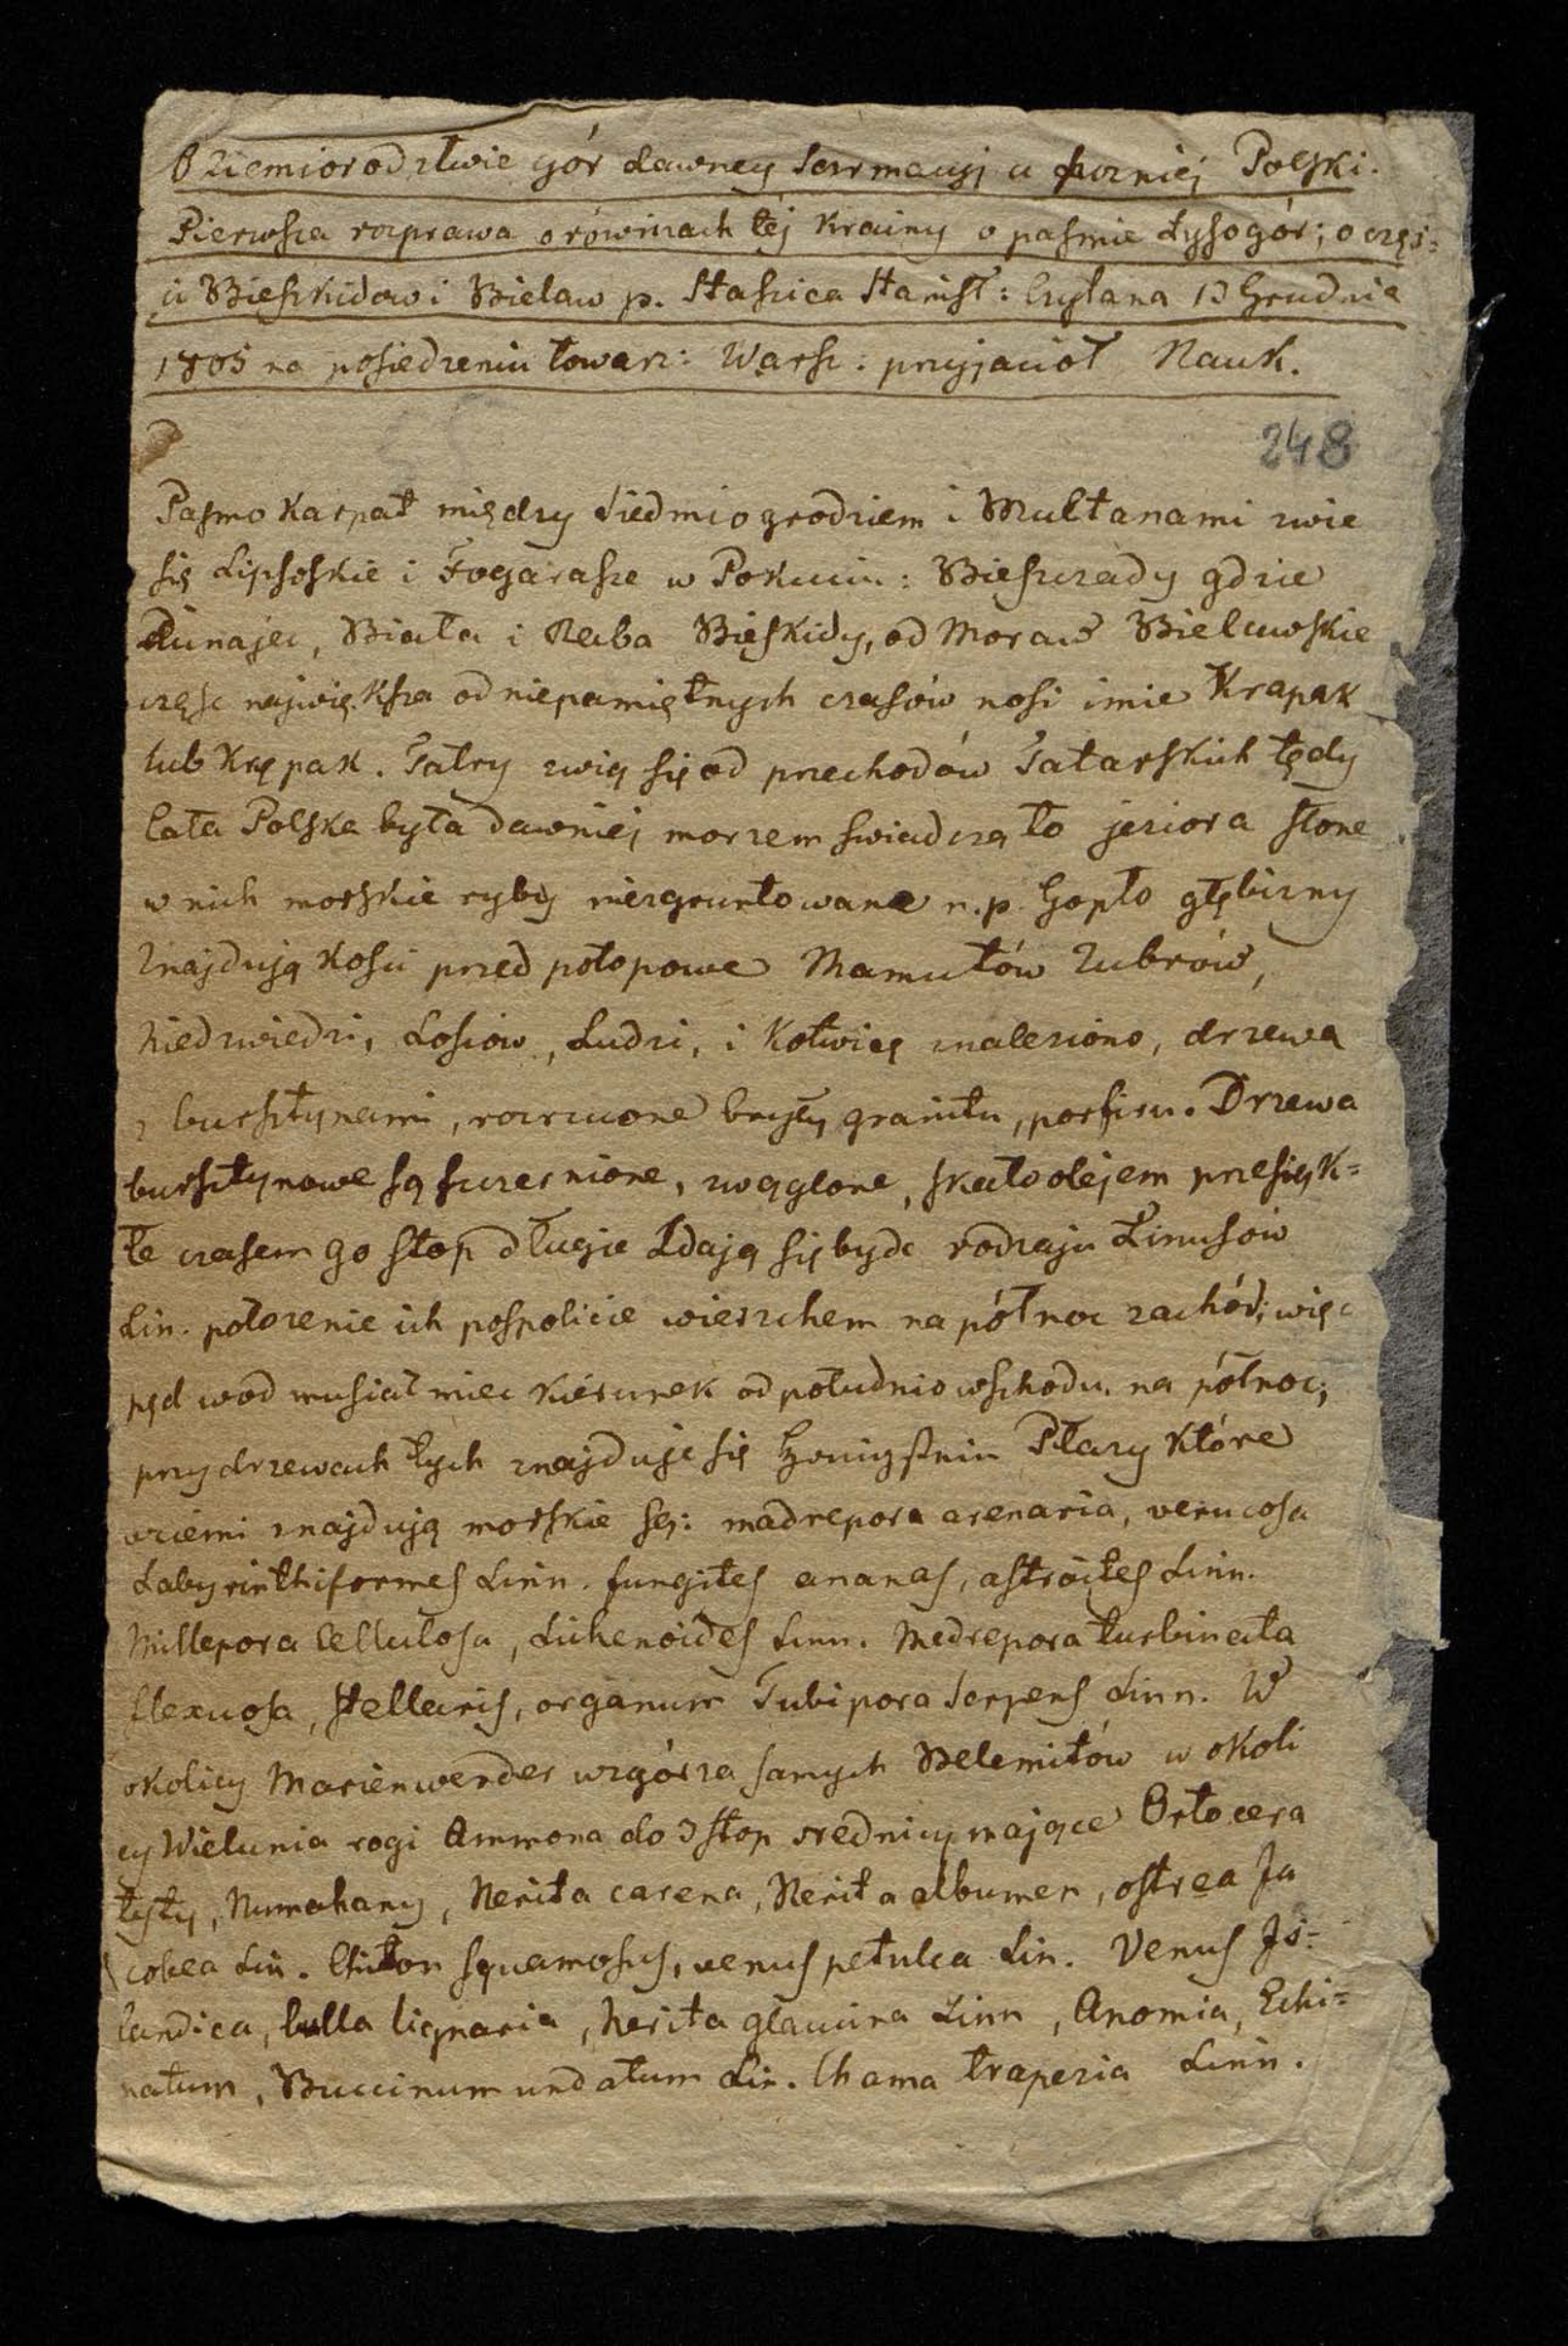 O ziemiorodztwie gór dawney Sarmacyi a pozniéj Polski.
Pierwsza rozprawa o równinach téj Krainy o pasmie Łysogór; o częś=
ci Bieszkidow i Bielaw p. Staszica Stanisł: Czytana 13 Grudnia
1805 na posiedzeniu towarz: Warsz: przyjaciół Nauk.
248
Pasmo Karpat między Siedmiogrodziem i Multanami zwie
się Lipsoskie i Fogarasze w Pokuciu: Bieszczady gdzie
Dunajec, Biała i Raba Bieskidy, od Moraw Bielawskie
częsc największa od niepamiętnych czasów nosi imie Krapak
lub Kępak. Tatry zwią się od przechodów Tatarskich tędy
Cała Polska była dawniéj morzem swiadczą to jeziora słone
w nich morskie ryby niezgruntowane n.p. Gopło głębizny
Znajdują kosci przed potopowe Mamutów Zubrów,
Niedzwiedzi, Łosiow, Ludzi, i Kotwicę znaleziono, drzewa
z bursztynami, rozrzucone bryły granitu, porfiru. Drzewa
bursztynowe są szczernione, zwęglone, skałoolejem przesięk=
łe czasem 90 stop długie Zdają się bydz rodzaju Pinusow
Lin. położenie ich pospolicie wierzchem na północ zachód; więc
pęd wod musiał miec kierunek od południo wschodu na północ;
przy drzewach tych znajduje się Honigstein Płazy które
w ziemi znajdują morskie są: madrepora arenaria, verucosa
Labyrinthiformes Linn. fungites ananas, astroites Linn.
Millepora Cellulosa, Lichenoides Linn. Madrepora turbinata
flexuosa, stellaris, organum Tubipora Serpens Linn. W
okolicy Marienwerder wzgórza samych Belemitów w okoli
cy Wielunia rogi Ammona do 3 stop srednicy mające Ortocera
tyty, Nerita carena, Nerita albumen, ostrea Ja
cobea Lin. Chiton squamosus, venus petulca Lin. Venus Js=
landica, bulla lignaria, Nerita glaucina Linn, Anomia, Echi=
natum, Buccinum undatum Lin. Chama trapezia Linn.